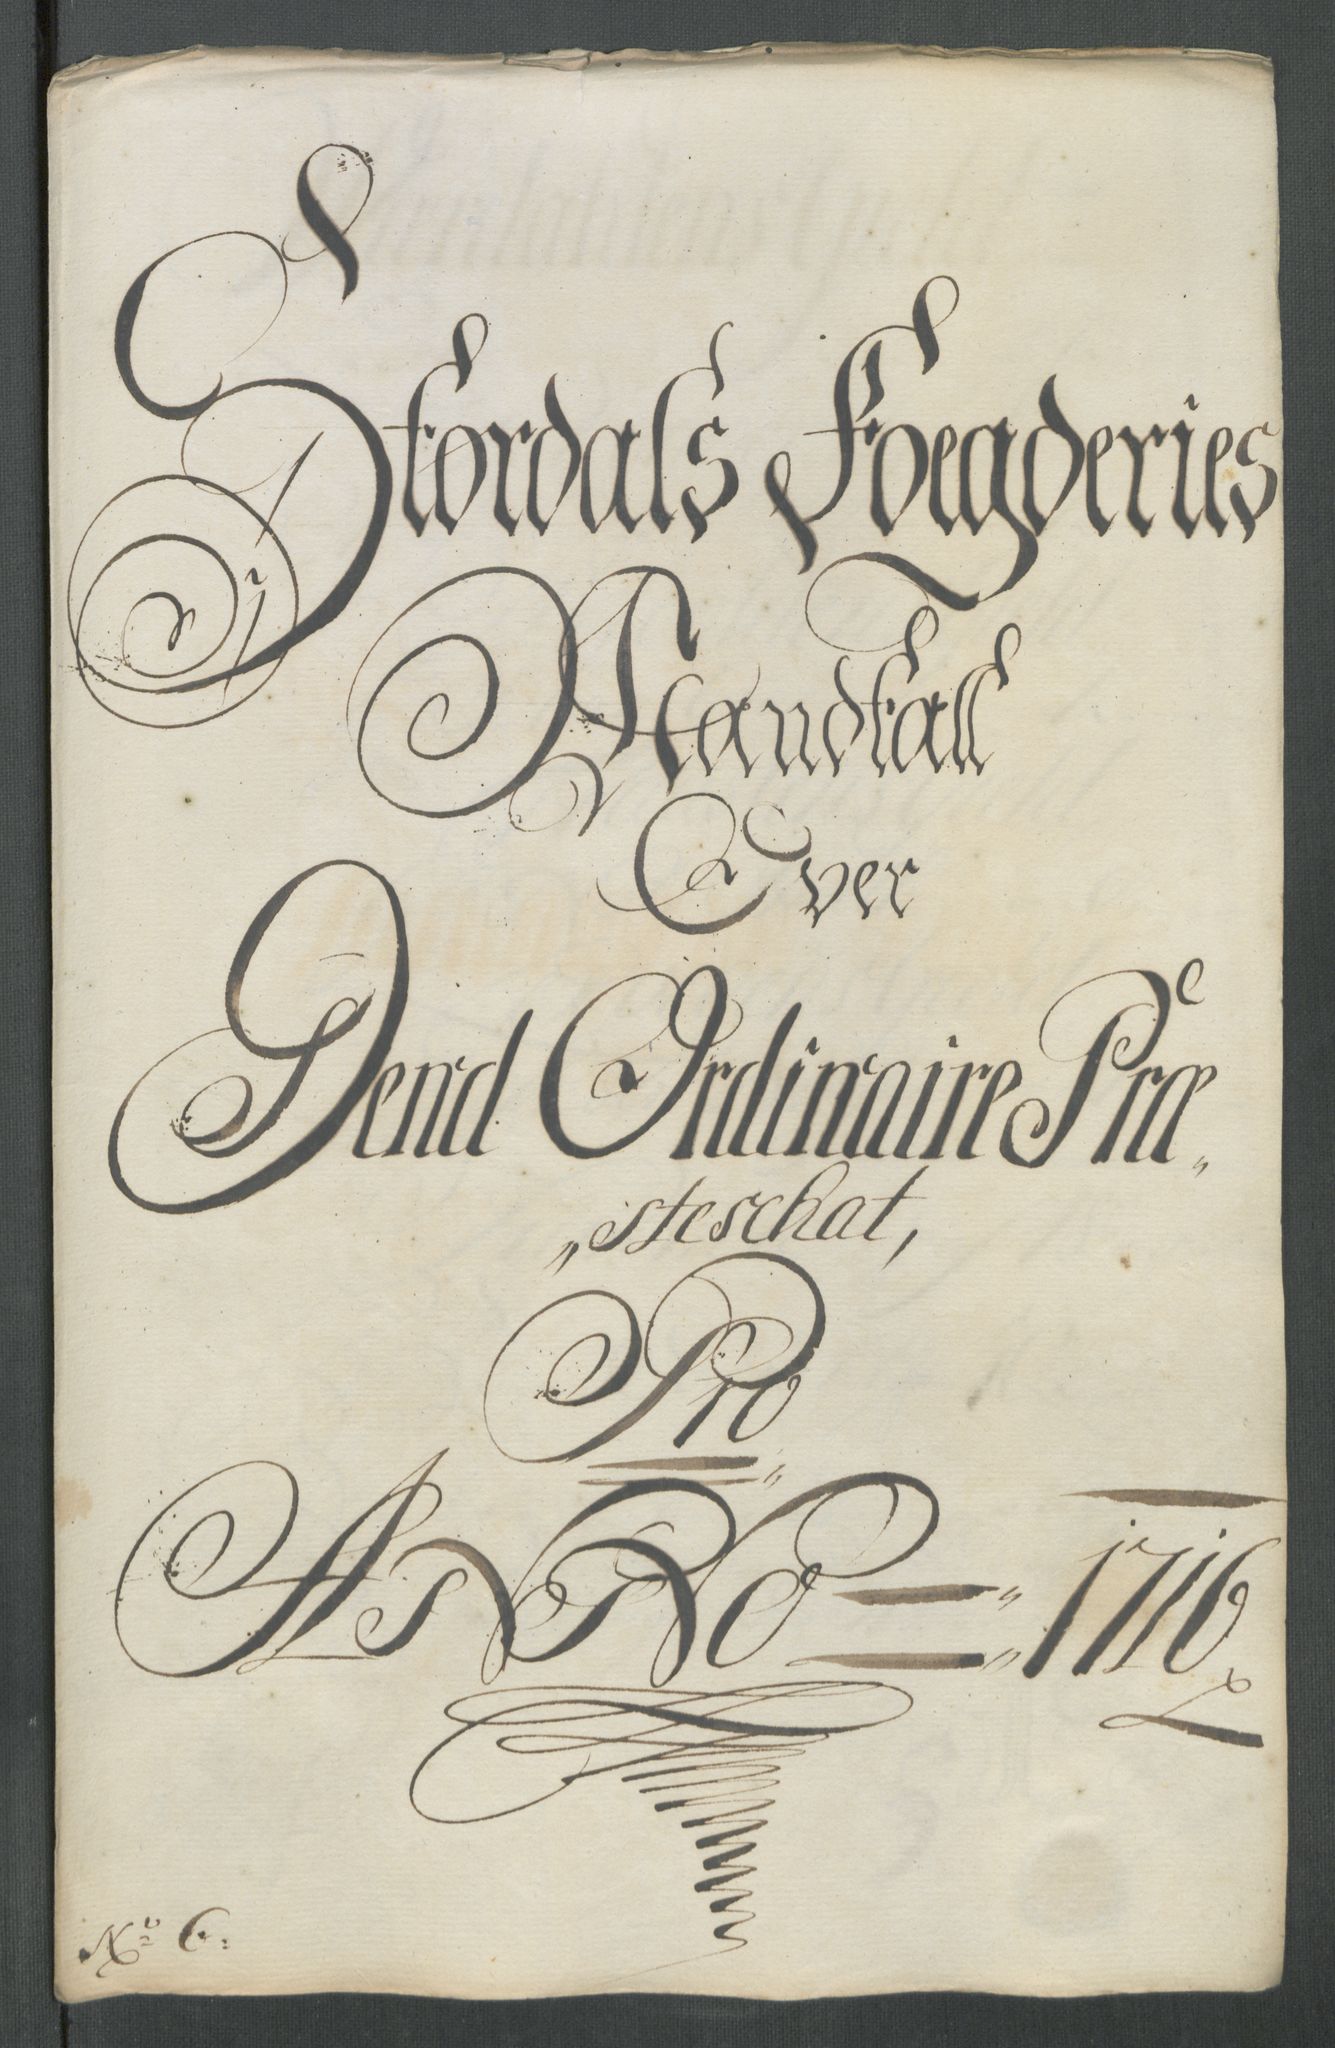 Størdals Foegderies
Mandtall
Over
Dend Ordinaire Præ„
„steschat,
Pro
ANNO 1716
No 6: